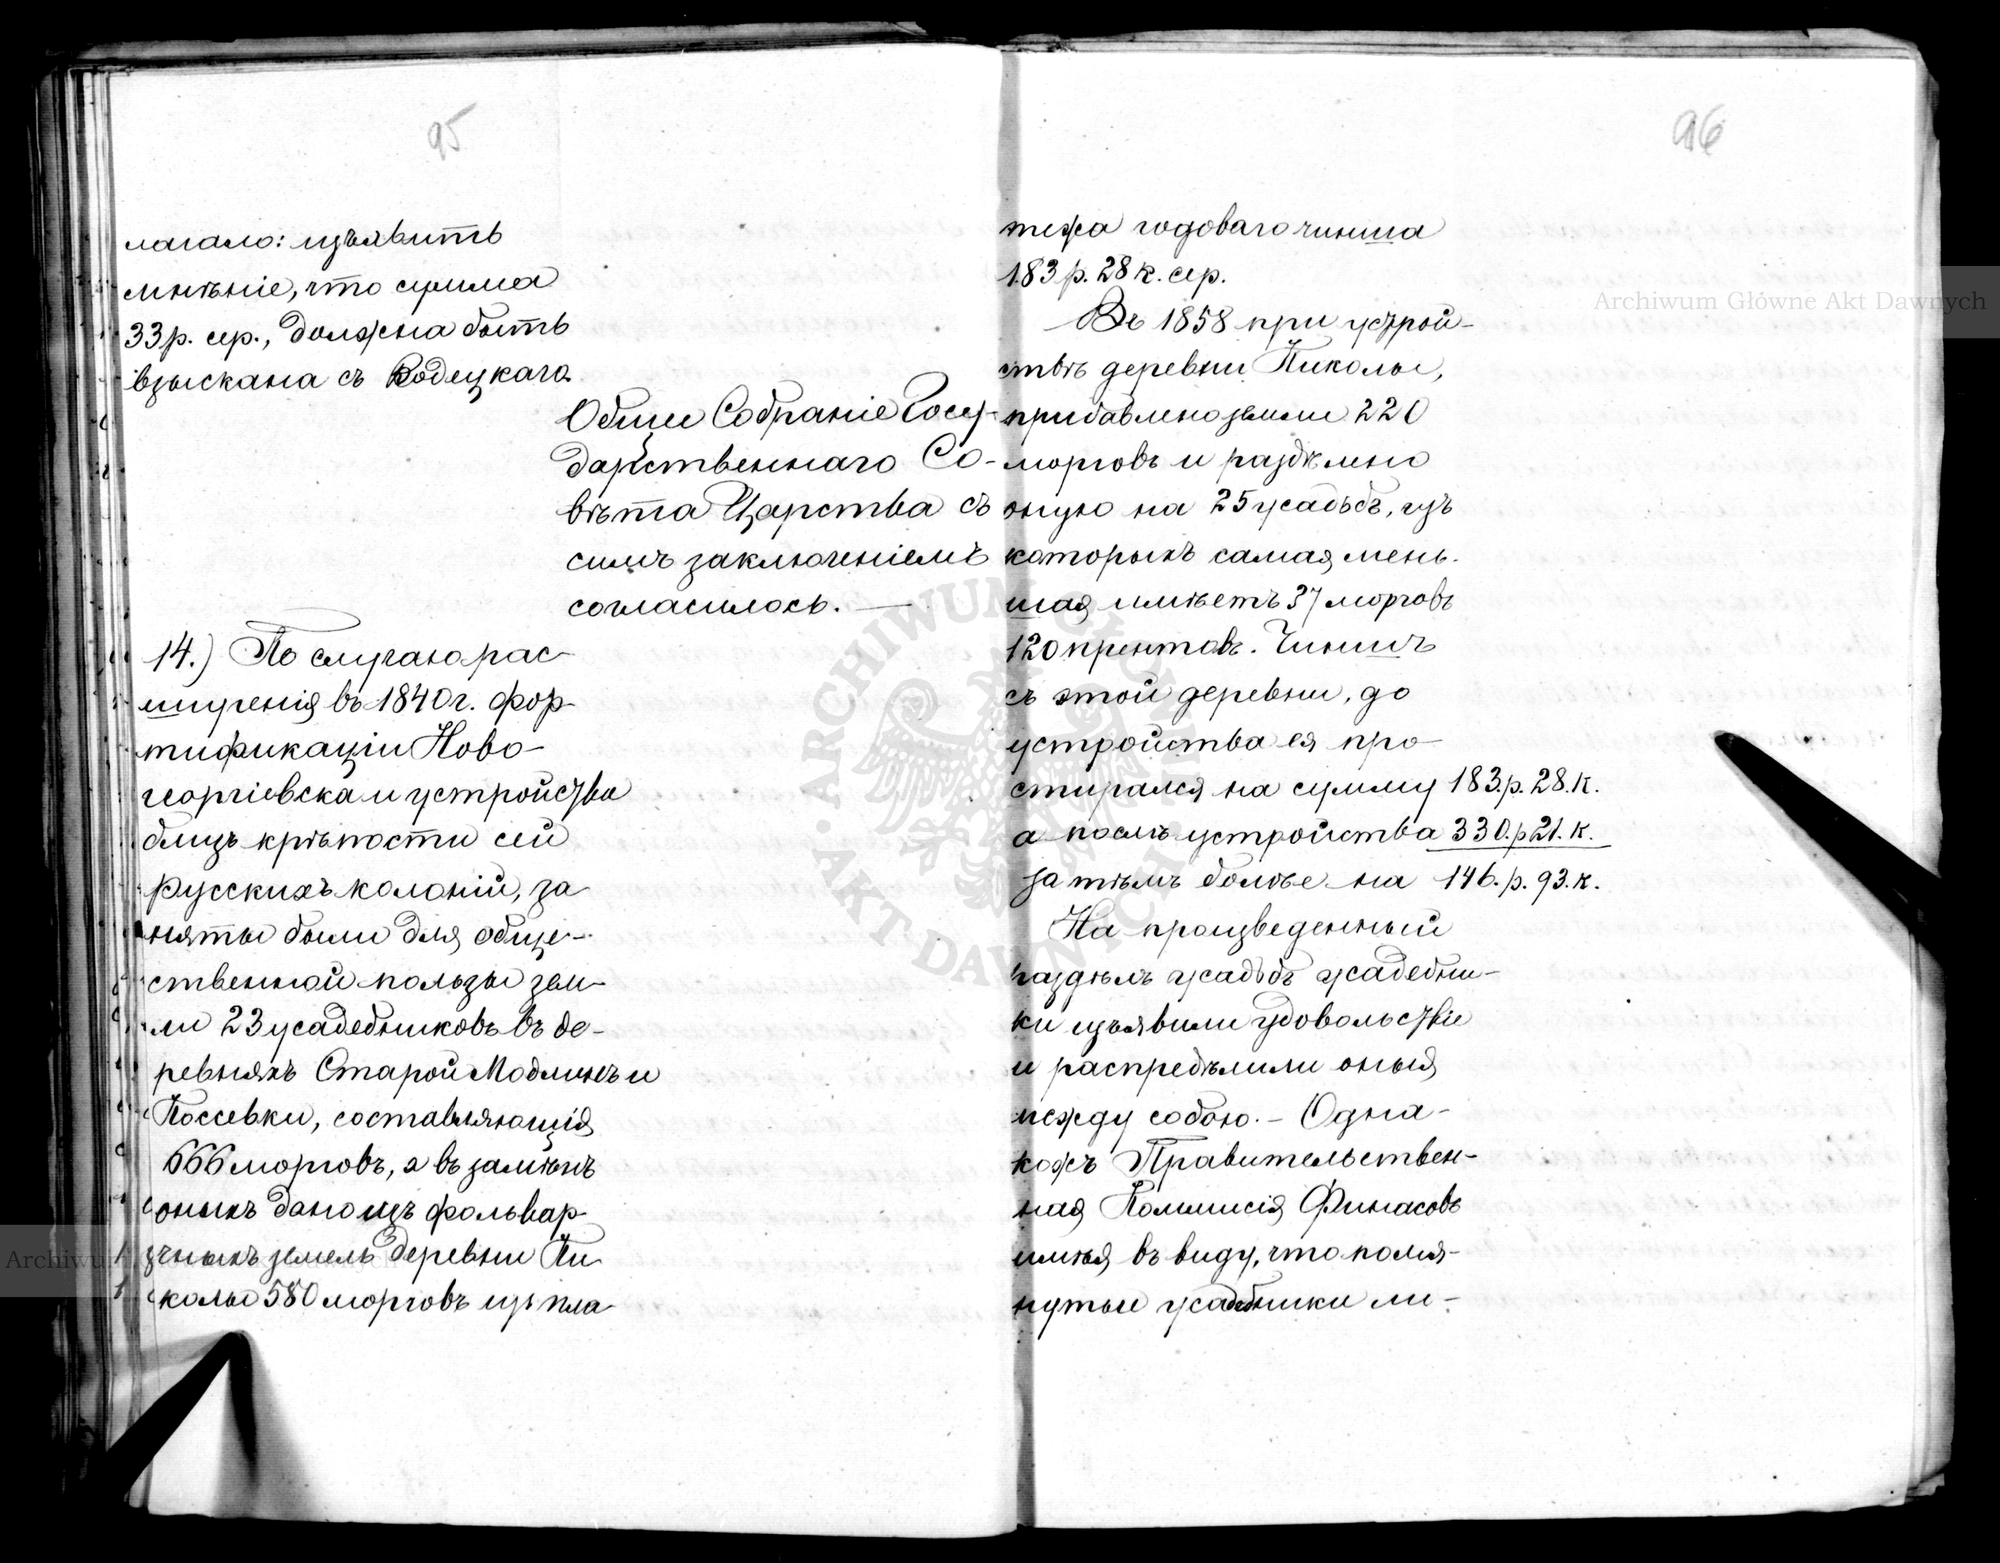 95
лагало: изъявить
мнѣніе, что сумма
33 р. сер., должна быть
взыскана съ Водецкаго
Общее Собраніе Госу-
дарственнаго Со-
вѣта Царства съ
симъ заключеніемъ
согласилось. —
14.) По случаю рас-
ширенія въ 1840 г. фор-
тификаціи Ново-
георгіевска и устройства
близъ крѣпости сей
Русскихъ колоній, за-
няты были для обще-
ственной пользы зем-
ли 23 усадебниковъ въ де-
ревняхъ Старой Модлинъ и
Поссевки, составляющія
666 морговъ, а въ замѣнъ
оныхъ дано изъ фольвар-
чныхъ земель деревни Пи-
колы 580 морговъ изъ пла-
96
тежа годоваго чинша
183 р. 28 к. сер.
Въ 1858 при устрой-
ствѣ деревни Пиколы,
прибавлено земли 220
морговъ и раздѣлено
оную на 25 усадьбъ, изъ
которыхъ самая мень-
шая имѣетъ 37 морговъ
120 прентовъ. Чиншъ
съ этой деревни, до
устройства ея про-
стирался на сумму 183. р. 28. к.
а послѣ устройства 330. р 21. к.
за тѣмъ болѣе на 146. р. 93. к.
На произведенный
раздѣлъ усадьбъ усадебни-
ки изъявили удовольствіе
и распредѣлили оныя
между собою. – Одна-
кожъ Правительствен-
ная Коммисія Финасовъ
имѣя въ виду, что помя-
нутые усадебники ли-
Archiwum Główne Akt Dawnych
ARCHIWUM GŁÓWNE AKT DAWNYCH